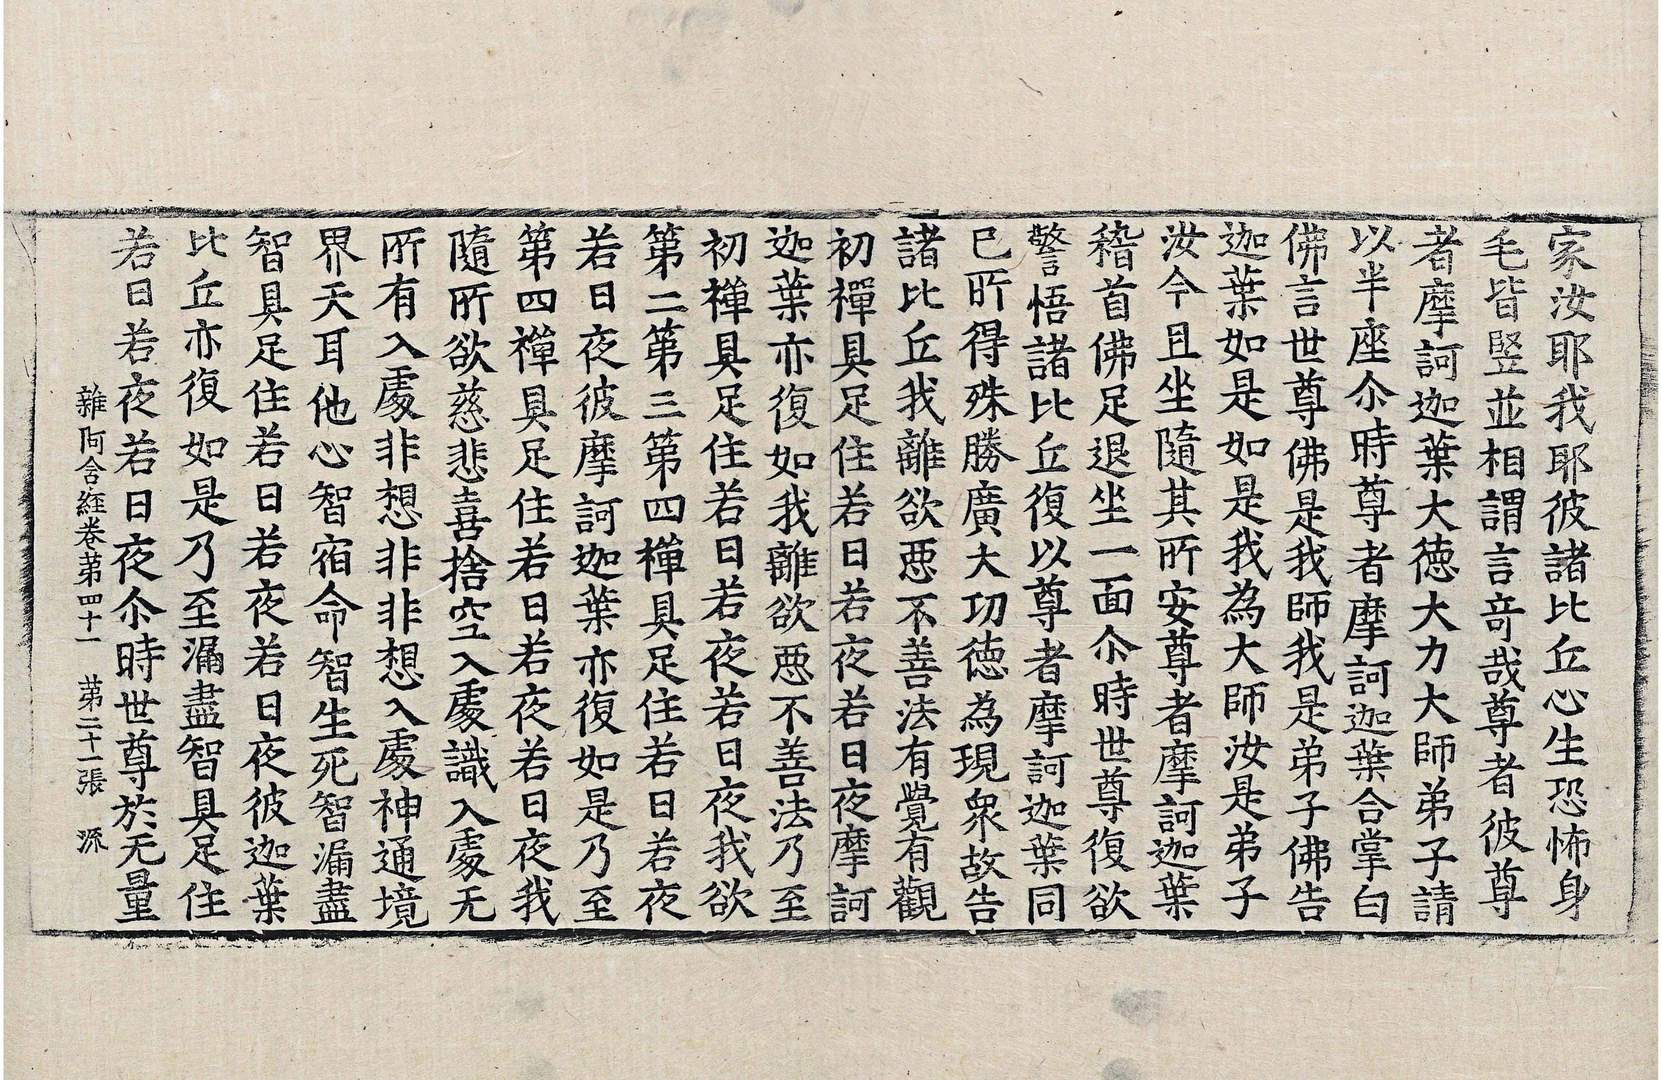 家汝耶我耶彼諸比丘心生恐怖身
毛皆竪並相謂言竒哉尊者彼尊
者摩訶迦葉大德大力大師弟子請
以半座尒時尊者摩訶迦葉合掌白
佛言世尊佛是我師我是弟子佛告
迦葉如是如是我為大師汝是弟子
汝今且坐隨其所安尊者摩訶迦葉
稽首佛足退坐一面尒時世尊復欲
警悟諸比丘復以尊者摩訶迦葉同
已所得殊勝廣大功德為現衆故告
諸比丘我離欲惡不善法有覺有觀
初禪具足住若日若夜若日夜摩訶
迦葉亦復如我離欲惡不善法乃至
初禪具足住若日若夜若日夜我欲
第二第三第四禪具足住若日若夜
若日夜彼摩訶迦葉亦復如是乃至
第四禪具足住若日若夜若日夜我
隨所欲慈悲喜捨空入處識入處无
所有入處非想非非想入處神通境
界天耳他心智宿命智生死智漏盡
智具足住若日若夜若日夜彼迦葉
比丘亦復如是乃至漏盡智具足住
若日若夜若日夜尒時世尊於无量
雜阿含經卷苐四十一 苐二十一張 派